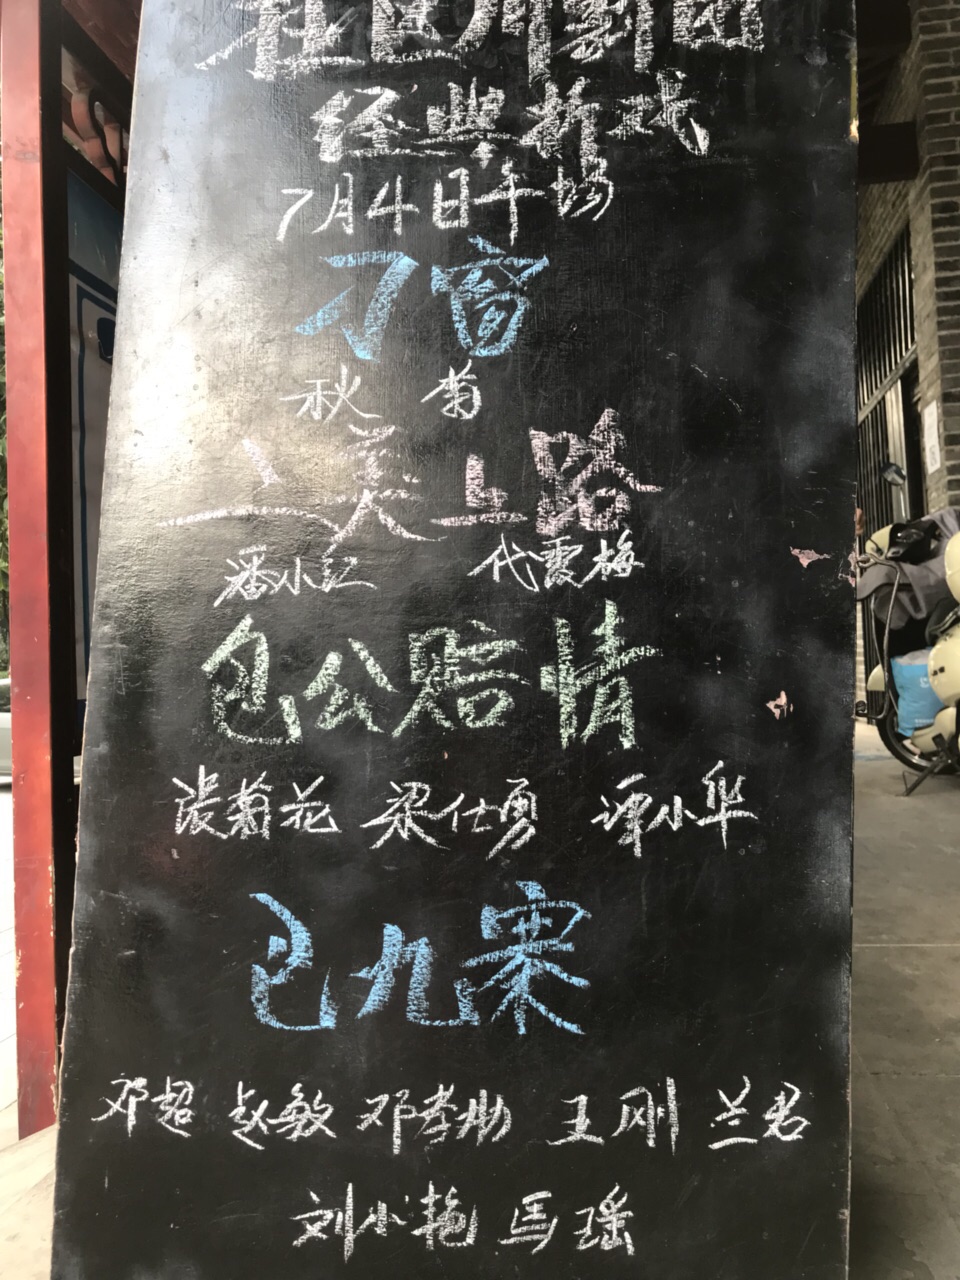 社区川剧团
经典折戏
7月4日午场
刁窗
秋菊
上美上路
潘小红 代霞梅
包公赔情
梁仕勇 谭小华
巴九寨
邓超 赵敏 邓孝勋 王刚 兰君
刘小艳 马瑶